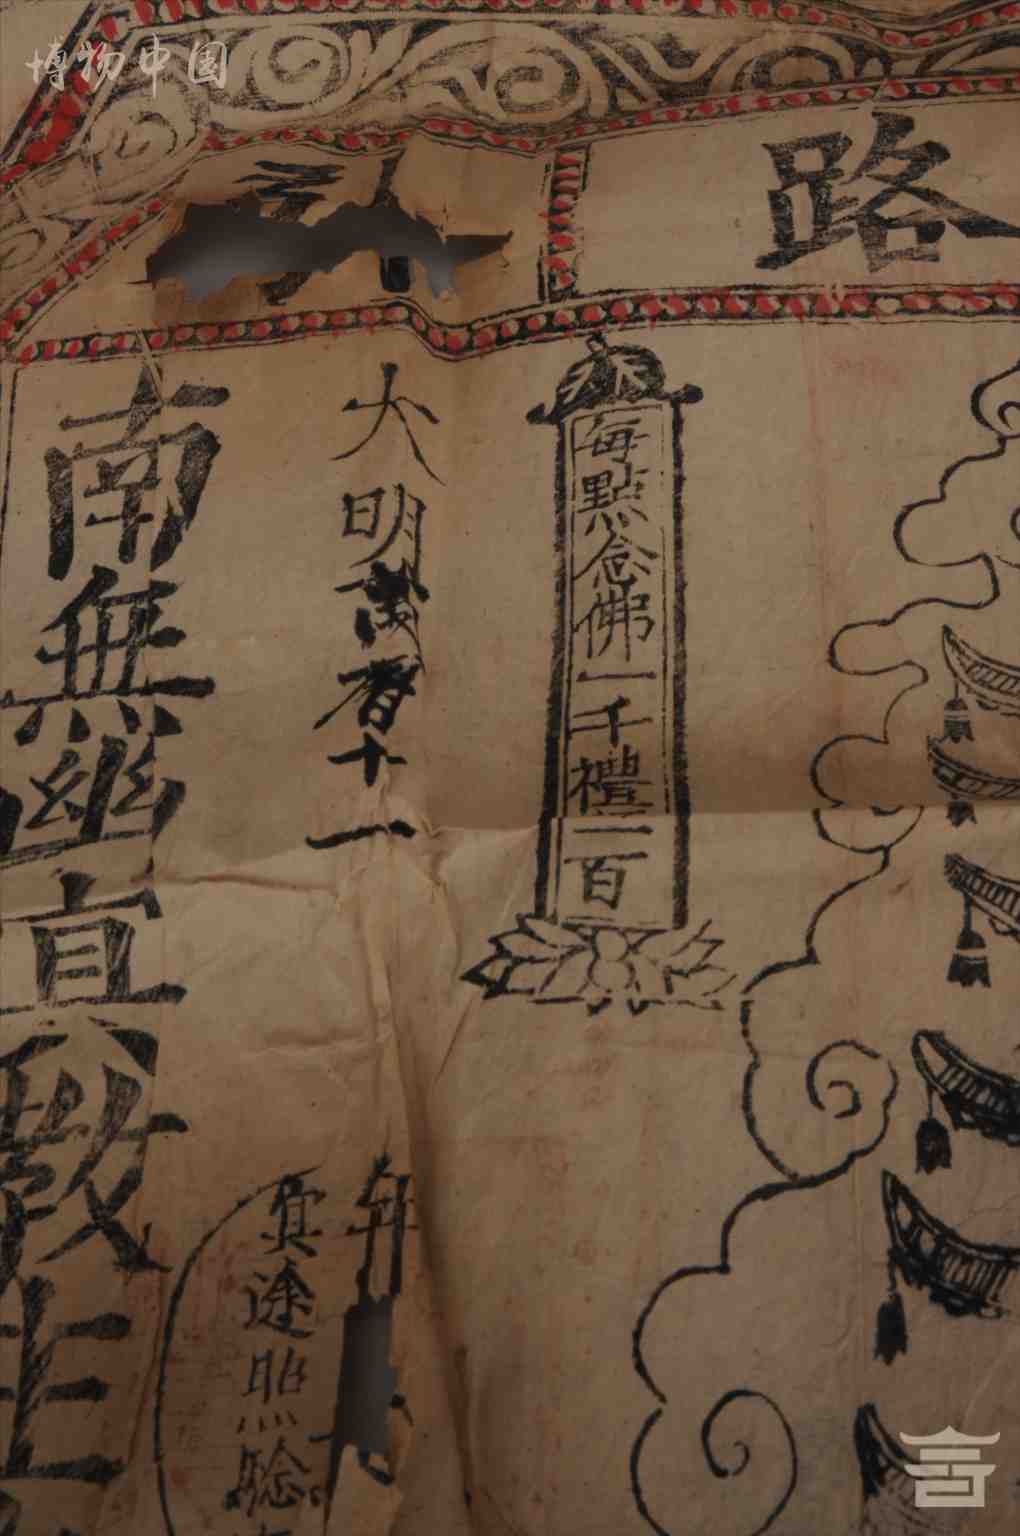 博物中国
路
每點念佛一千禮一百
大明萬曆十一年
冥途照驗
南無幽冥教主